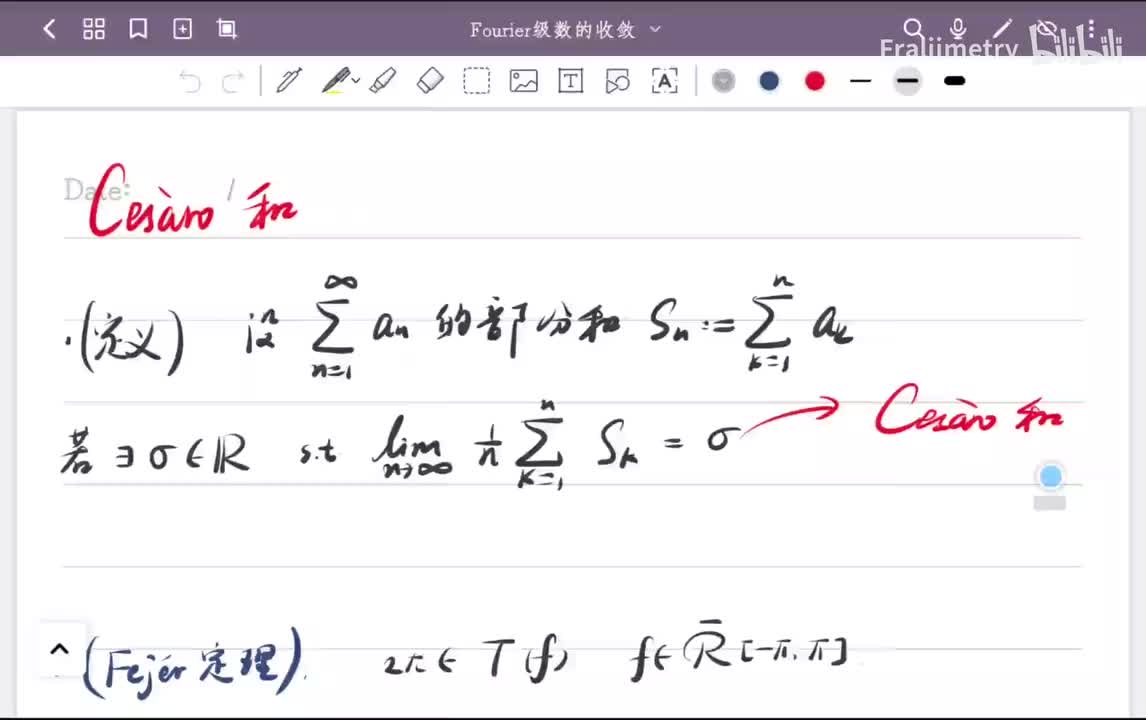 Fourier级数的收敛
Fraliimetry bilibili
Date: /
Cesàro 和
·(定义) 设 ∑_{n=1}^{∞} aₙ 的部分和 Sₙ := ∑_{k=1}^{n} aₖ
若 ∃ σ ∈ ℝ s.t lim_{n→∞} 1/n ∑_{k=1}^{n} Sₖ = σ → Cesàro 和
(Fejér 定理). 2π ∈ T(f) f ∈ R̄[-π, π]